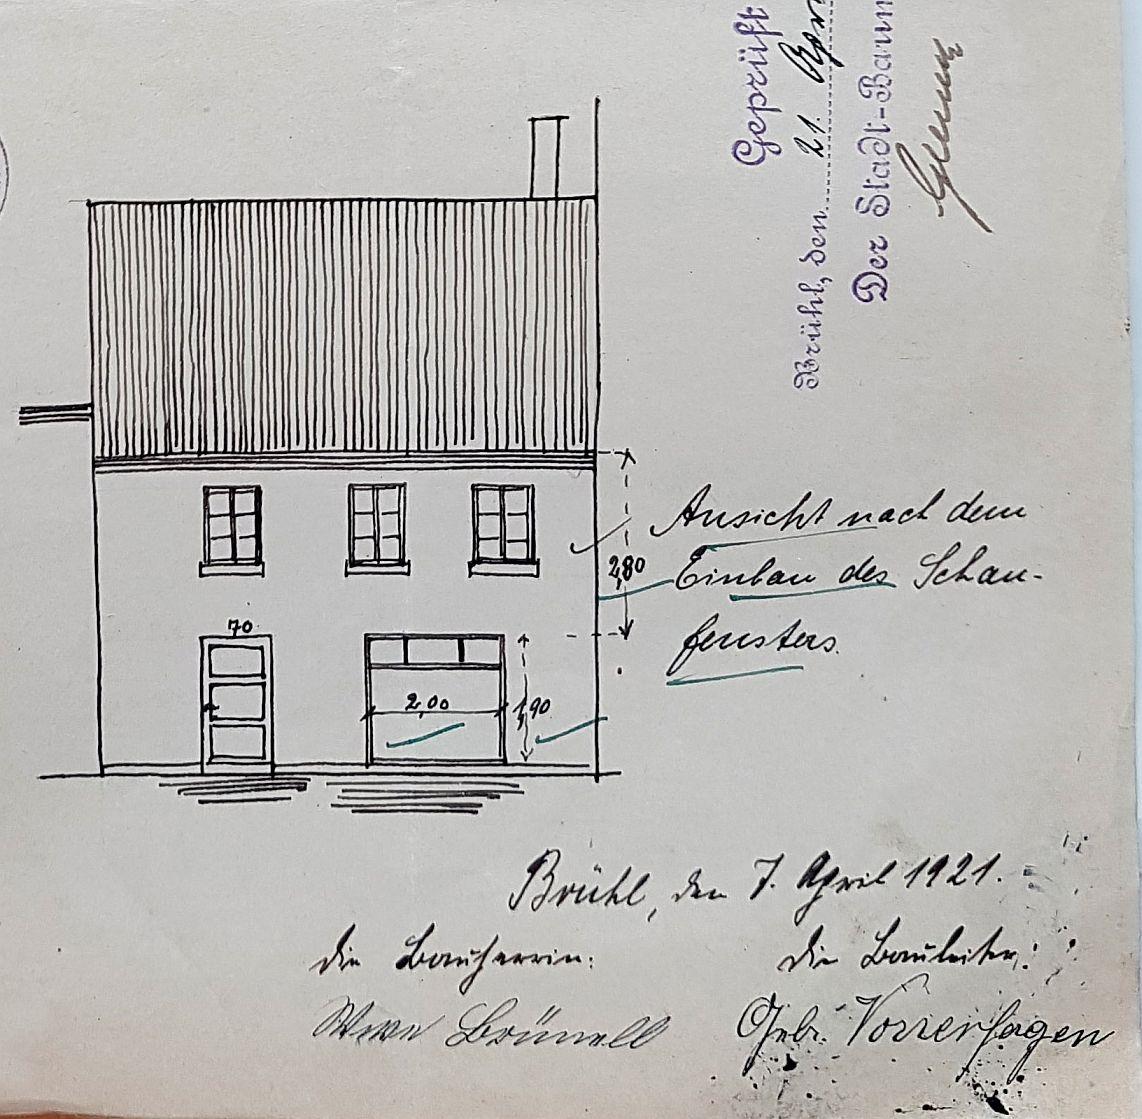 Geprüft
Brühl, den 21. Apr
Der Stadt-Baum
Ansicht nach dem
Einbau des Schau-
fensters.
2,80
70
2,00
1,90
Brühl, den 7. April 1921.
die Bauherrin:
die Bauleiter:
Wwe Brünell
Gebr. Vorrerhagen